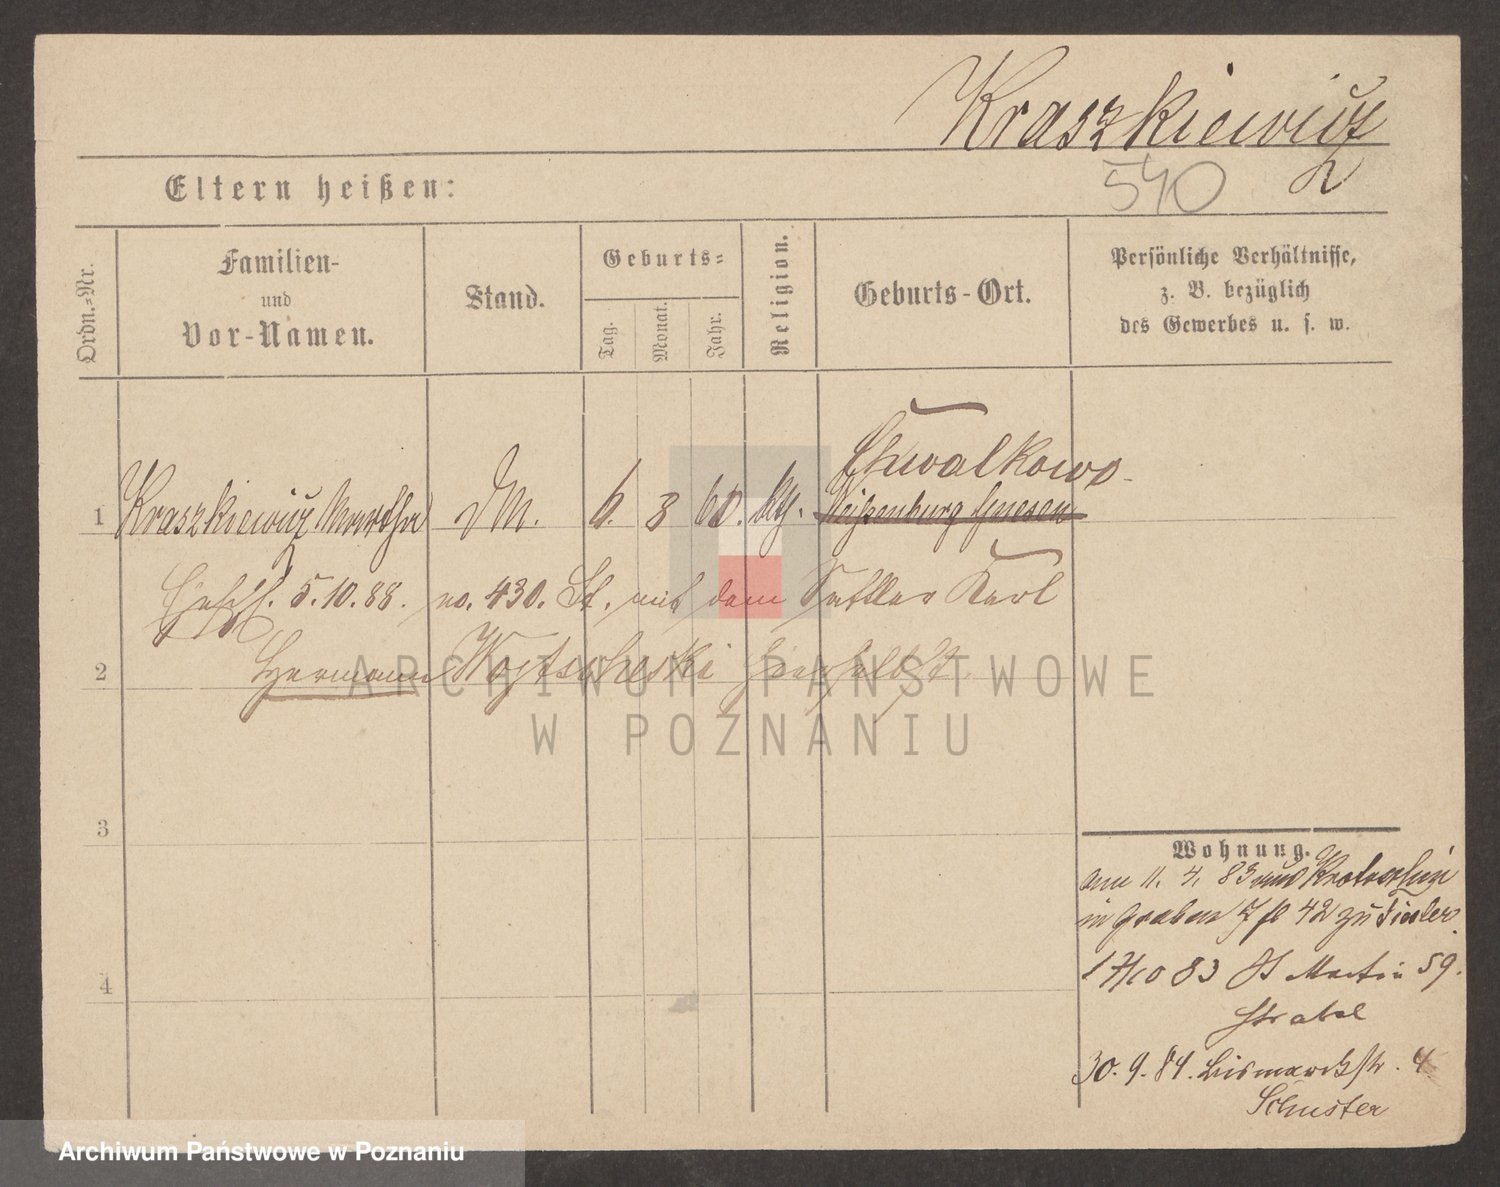 Kraszkiewicz
540
Eltern heißen:
Ordn.-Nr.
Familien-
und
Vor-Namen.
Stand.
Geburts-
Tag.
Monat.
Jahr.
Religion.
Geburts-Ort.
Persönliche Verhältnisse,
z. B. bezüglich
des Gewerbes u. s. w.
Chwalkowo
1 Kraszkiewicz Martha DM. 6. 3 60. kth. Weißenburg Gnesen
5.10.88. no. 430. St. mit dem Sattler Karl
2 Hermann Wojtscheski hierselbst
3
4
Wohnung.
am 11. 4. 83 aus Krotoschin
in Graben 7 42 zu
17/10 83 St Martin 59.
Strabel
30. 9. 84. Bismarckstr. 4
Schuster
ARCHIWUM PAŃSTWOWE
W POZNANIU
Archiwum Państwowe w Poznaniu